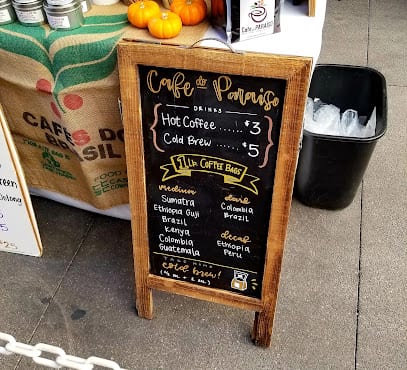 Cafe do PARAISO
CAFÉS DO
BRASIL
Cafe do Paraiso
DRINKS
Hot Coffee ...... $3
Cold Brew ...... $5
1 Lb. COFFEE BAGS
medium
Sumatra
Ethiopia Guji
Brazil
Kenya
Colombia
Guatemala
dark
Colombia
Brazil
decaf
Ethiopia
Peru
TAKE HOME
cold brew!